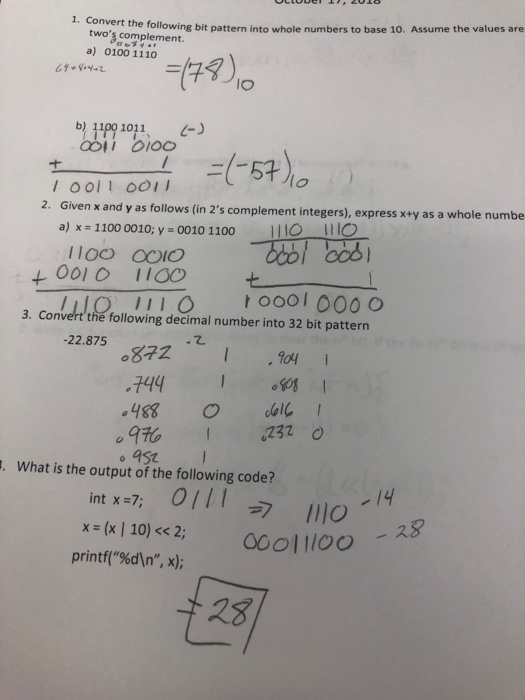 1. Convert the following bit pattern into whole numbers to base 10. Assume the values are
two's complement.
a) 0100 1110
64+8+4+2
=(78)10
b) 1100 1011 (-)
0011 0100
+ 1
1 0011 0011
=(-57)10
2. Given x and y as follows (in 2's complement integers), express x+y as a whole numbe
a) x = 1100 0010; y = 0010 1100
1110 1110
1100 0010
0001 0001
+ 0010 1100
+ 1
1110 1110
1 0001 0000
3. Convert the following decimal number into 32 bit pattern
-22.875
.2
.872 1 .904 1
.744 1 .808 1
.488 0 .616 1
.976 1 .232 0
.952 1
. What is the output of the following code?
int x =7; 0111 ⇒ 1110 - 14
x = (x | 10) << 2; 00011100 - 28
printf("%d\n", x);
28